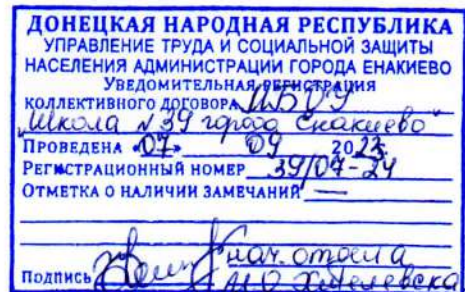 ДОНЕЦКАЯ НАРОДНАЯ РЕСПУБЛИКА
УПРАВЛЕНИЕ ТРУДА И СОЦИАЛЬНОЙ ЗАЩИТЫ
НАСЕЛЕНИЯ АДМИНИСТРАЦИИ ГОРОДА ЕНАКИЕВО
УВЕДОМИТЕЛЬНАЯ РЕГИСТРАЦИЯ
КОЛЛЕКТИВНОГО ДОГОВОРА МБОУ
"Школа №39 города Енакиево"
ПРОВЕДЕНА «07» 09 2023г.
РЕГИСТРАЦИОННЫЙ НОМЕР 39/07-24
ОТМЕТКА О НАЛИЧИИ ЗАМЕЧАНИЙ —
нач. отдела
ПОДПИСЬ